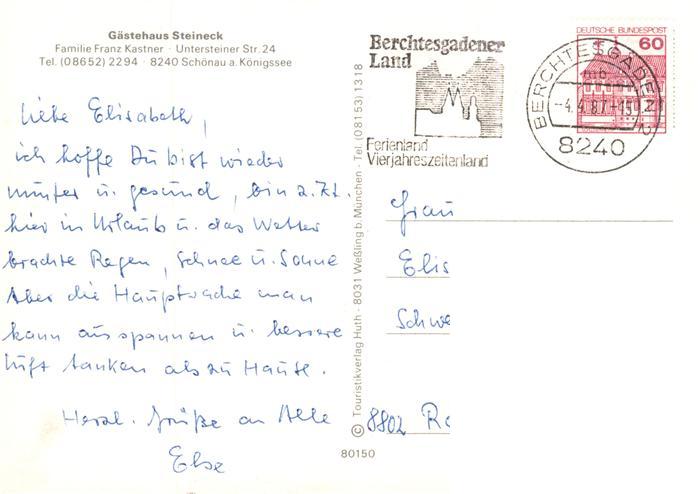 Gästehaus Steineck
Familie Franz Kastner · Untersteiner Str. 24
Tel. (08652) 2294 · 8240 Schönau a. Königssee
Liebe Elisabeth,
ich hoffe Du bist wieder
munter u. gesund, bin z. Zt.
hier in Urlaub u. das Wetter
brachte Regen, Schnee u. Sonne
Aber die Hauptsache man
kann ausspannen u. bessere
Luft tanken als zu Hause.
Herzl. Grüße an Alle
Else
© Touristikverlag Huth · 8031 Weßling b. München · Tel. (08153) 1318
80150
Berchtesgadener
Land
Ferienland
Vierjahreszeitenland
BERCHTESGADEN 2
-4.4.87-15
8240
DEUTSCHE BUNDESPOST
60
Frau
Elis
Schwe
8802